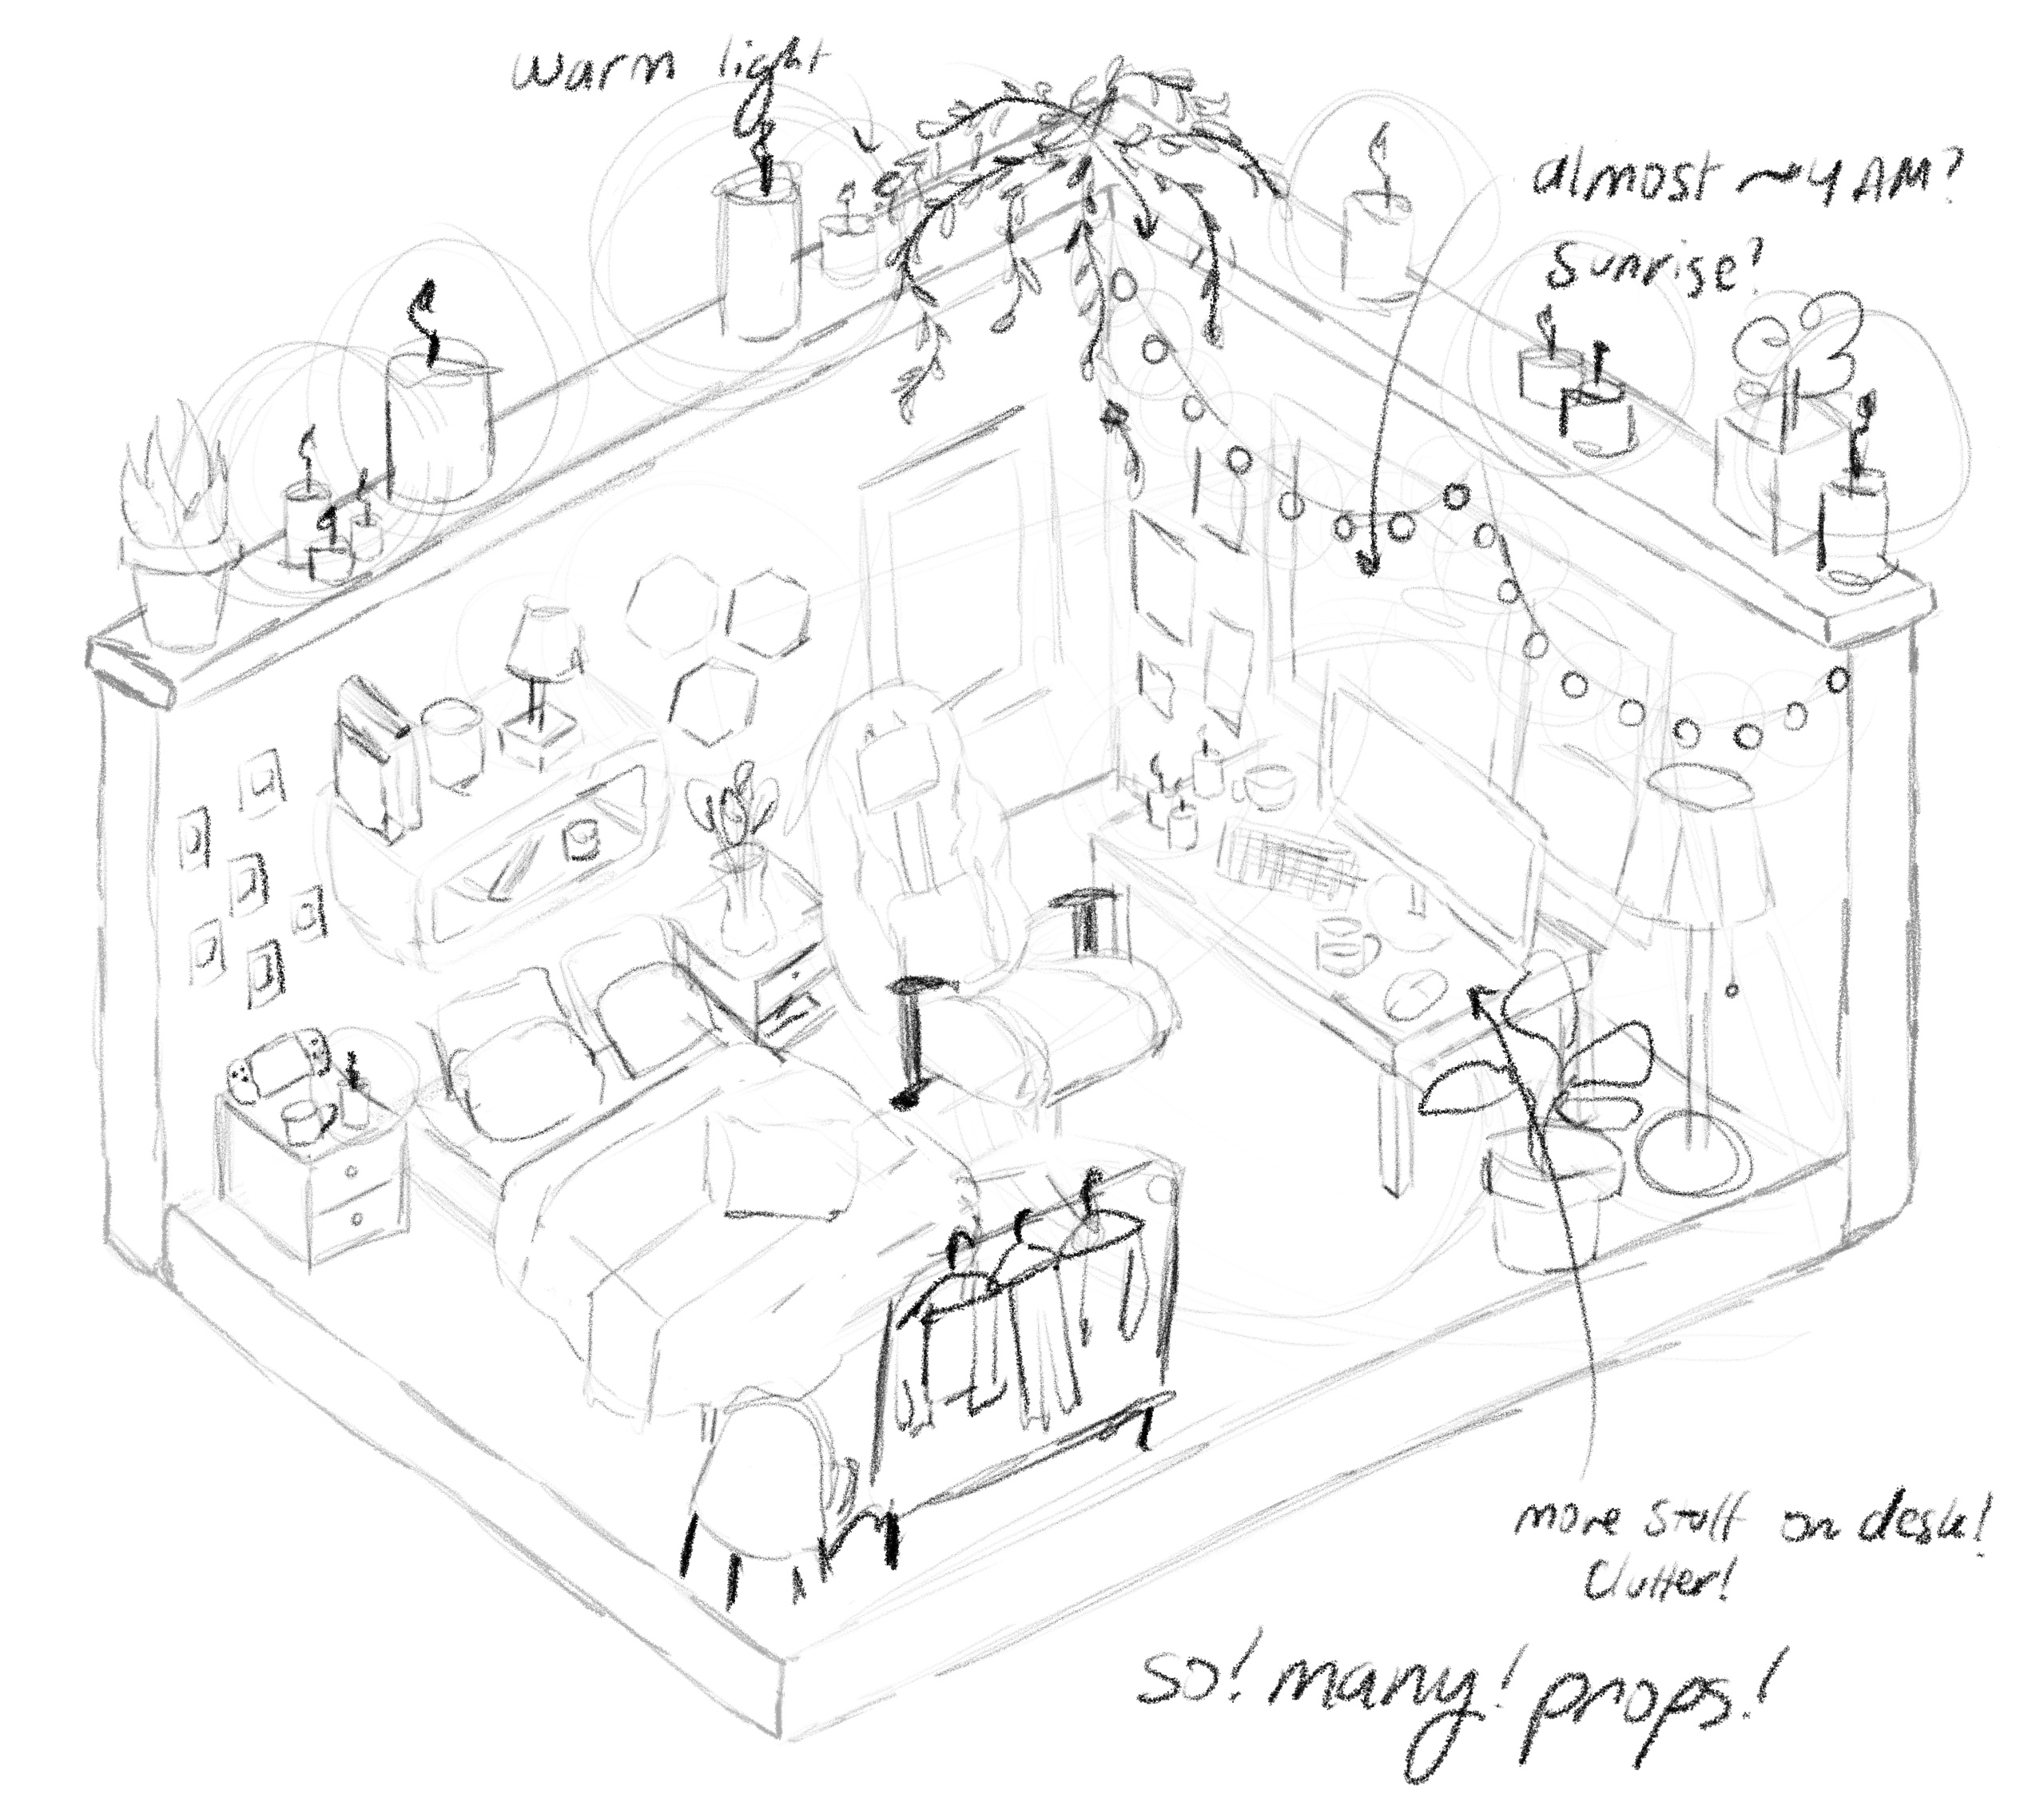 warm light
almost ~4 AM?
sunrise?
more stuff on desk!
Clutter!
so! many! props!